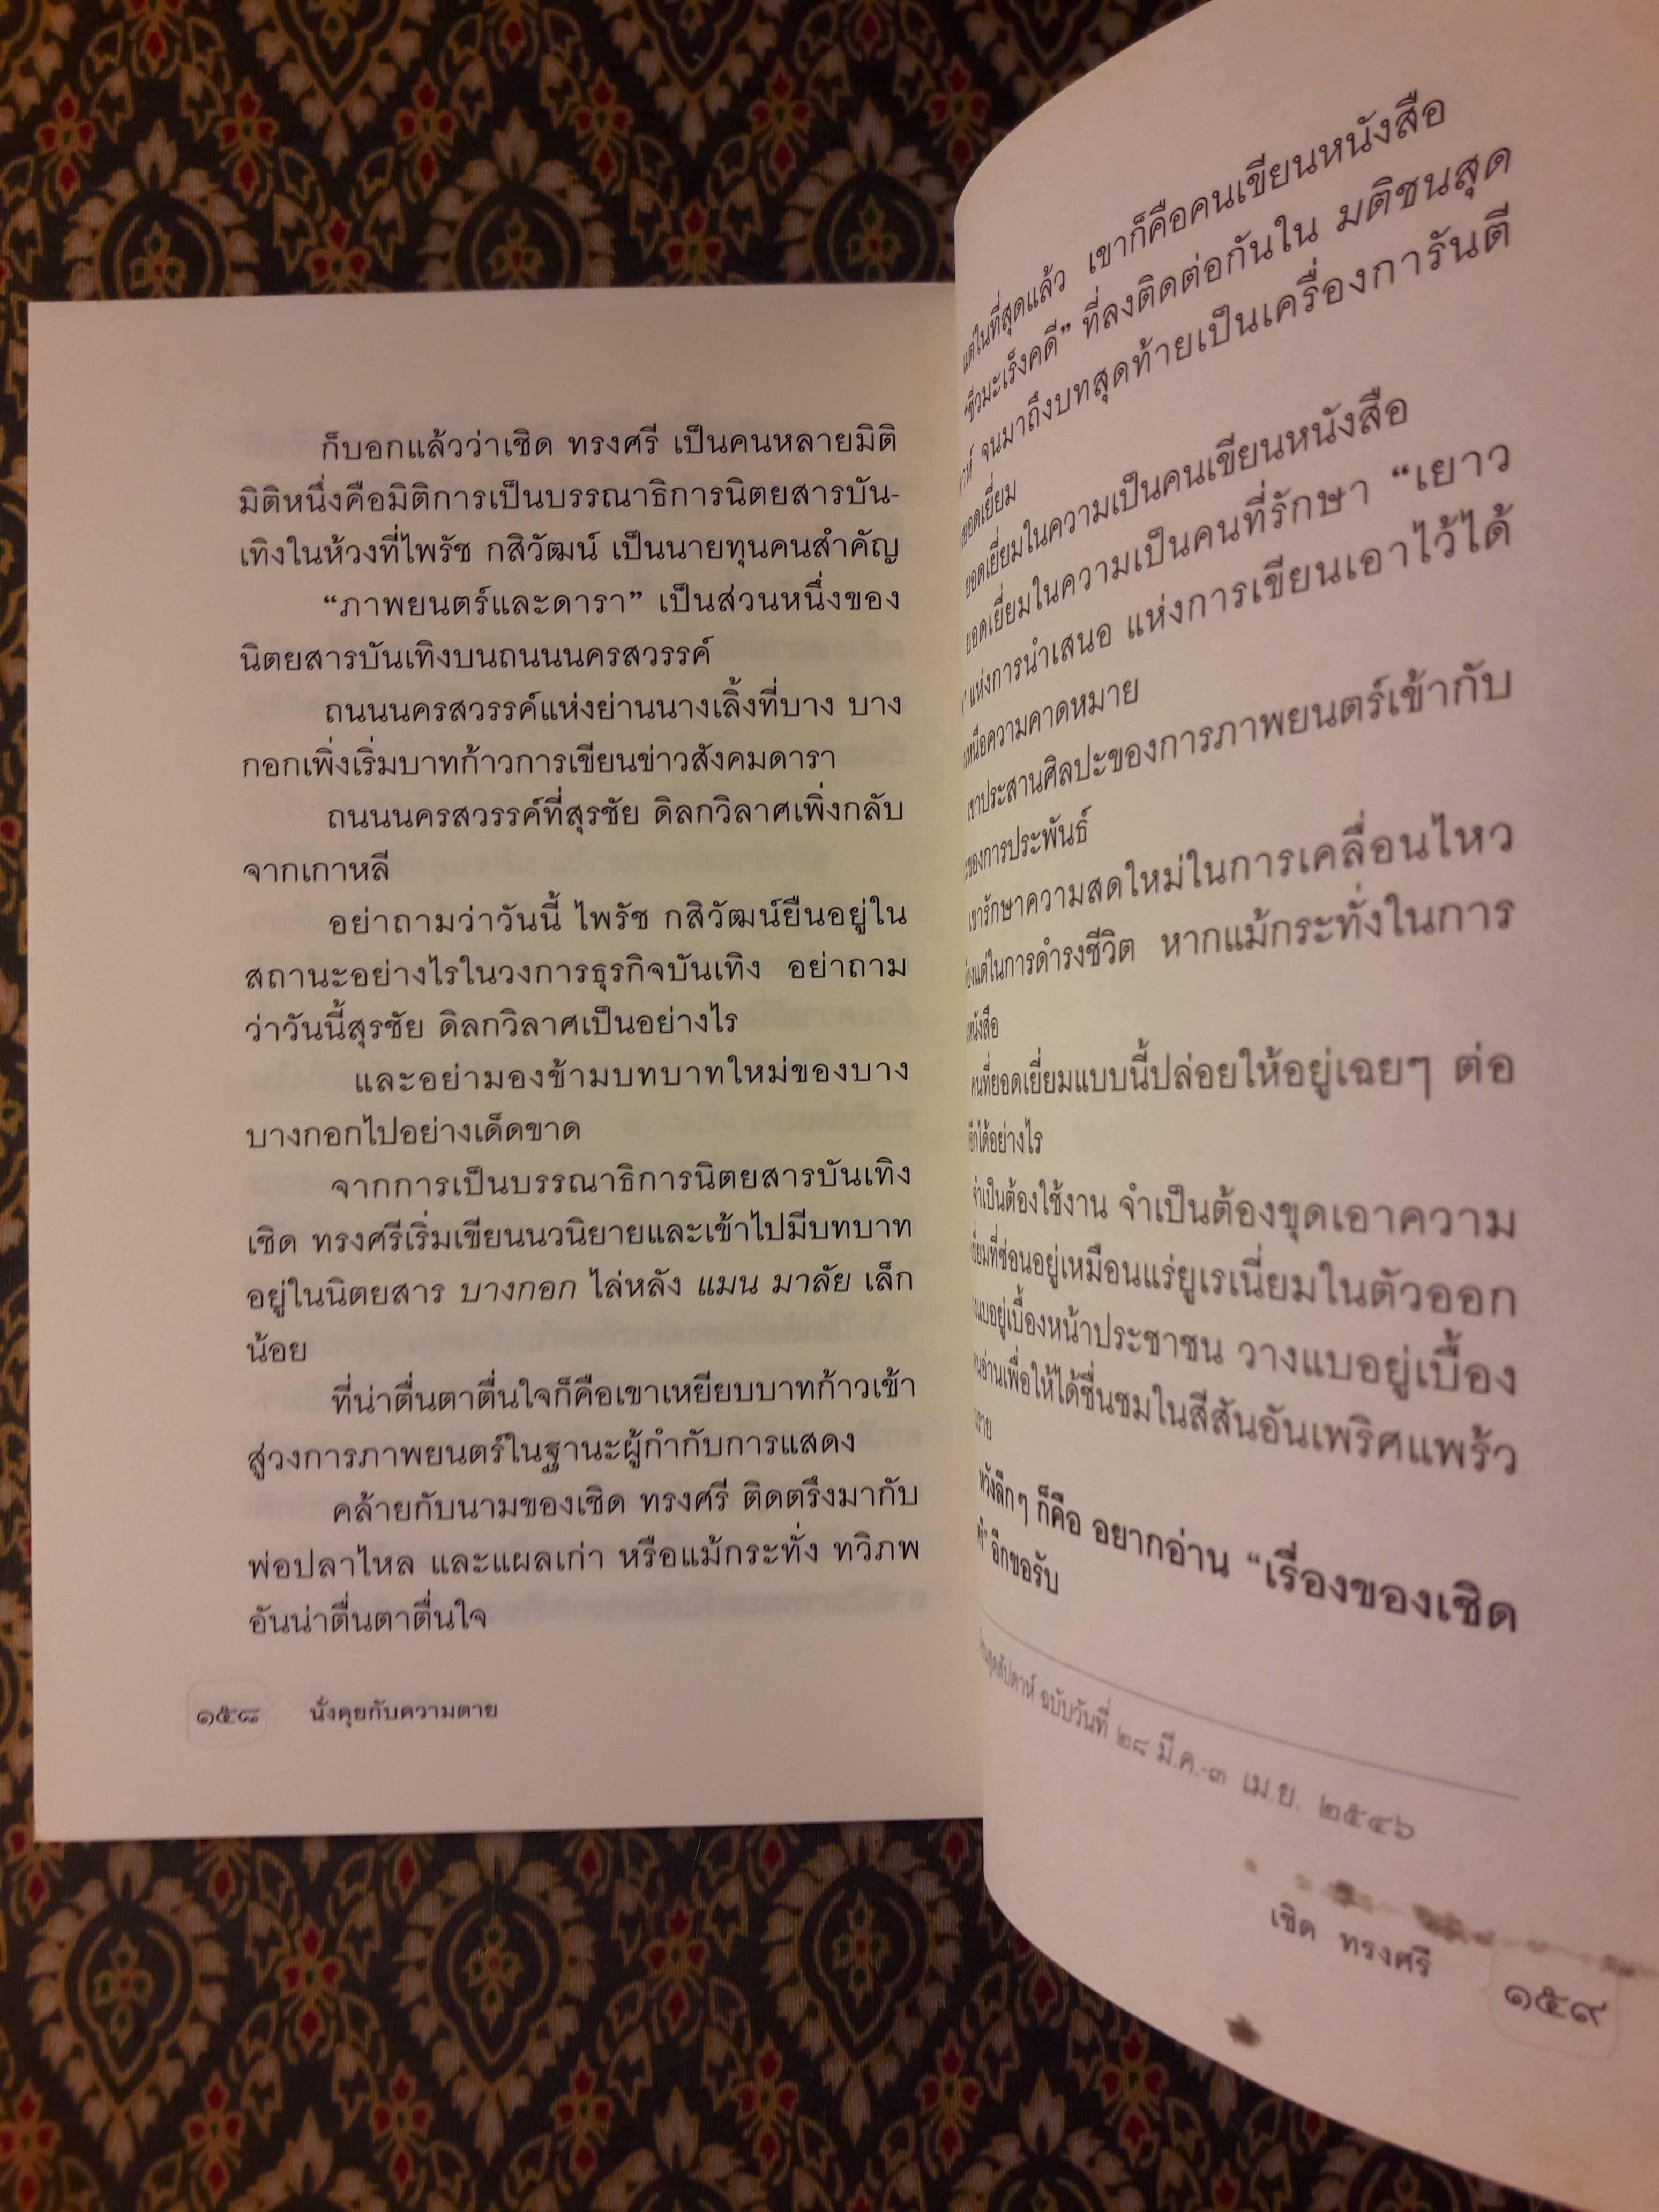 ก็บอกแล้วว่าเชิด ทรงศรี เป็นคนหลายมิติ
มิติหนึ่งคือมิติการเป็นบรรณาธิการนิตยสารบัน-
เทิงในห้วงที่ไพรัช กสิวัฒน์ เป็นนายทุนคนสำคัญ
“ภาพยนตร์และดารา” เป็นส่วนหนึ่งของ
นิตยสารบันเทิงบนถนนนครสวรรค์
ถนนนครสวรรค์แห่งย่านนางเลิ้งที่บาง บาง
กอกเพิ่งเริ่มบาทก้าวการเขียนข่าวสังคมดารา
ถนนนครสวรรค์ที่สุรชัย ดิลกวิลาศเพิ่งกลับ
จากเกาหลี
อย่าถามว่าวันนี้ ไพรัช กสิวัฒน์ยืนอยู่ใน
สถานะอย่างไรในวงการธุรกิจบันเทิง อย่าถาม
ว่าวันนี้สุรชัย ดิลกวิลาศเป็นอย่างไร
และอย่ามองข้ามบทบาทใหม่ของบาง
บางกอกไปอย่างเด็ดขาด
จากการเป็นบรรณาธิการนิตยสารบันเทิง
เชิด ทรงศรีเริ่มเขียนนวนิยายและเข้าไปมีบทบาท
อยู่ในนิตยสาร บางกอก ไล่หลัง แมน มาลัย เล็ก
น้อย
ที่น่าตื่นตาตื่นใจก็คือเขาเหยียบบาทก้าวเข้า
สู่วงการภาพยนตร์ในฐานะผู้กำกับการแสดง
คล้ายกับนามของเชิด ทรงศรี ติดตรึงมากับ
พ่อปลาไหล และแผลเก่า หรือแม้กระทั่ง ทวิภพ
อันน่าตื่นตาตื่นใจ
๑๕๘ นั่งคุยกับความตาย
แต่ในที่สุดแล้ว เขาก็คือคนเขียนหนังสือ
“ชีวมะเร็งคดี” ที่ลงติดต่อกันใน มติชนสุด
จนมาถึงบทสุดท้ายเป็นเครื่องการันตี
ยอดเยี่ยม
ยอดเยี่ยมในความเป็นคนเขียนหนังสือ
ยอดเยี่ยมในความเป็นคนที่รักษา “เยาว
แห่งการนำเสนอ แห่งการเขียนเอาไว้ได้
เหนือความคาดหมาย
เขาประสานศิลปะของการภาพยนตร์เข้ากับ
ของการประพันธ์
เขารักษาความสดใหม่ในการเคลื่อนไหว
แต่ในการดำรงชีวิต หากแม้กระทั่งในการ
หนังสือ
คนที่ยอดเยี่ยมแบบนี้ปล่อยให้อยู่เฉยๆ ต่อ
อีกได้อย่างไร
จำเป็นต้องใช้งาน จำเป็นต้องขุดเอาความ
เยี่ยมที่ซ่อนอยู่เหมือนแร่ยูเรเนี่ยมในตัวออก
แบอยู่เบื้องหน้าประชาชน วางแบอยู่เบื้อง
คนอ่านเพื่อให้ได้ชื่นชมในสีสันอันเพริศแพร้ว
หวังลึกๆ ก็คือ อยากอ่าน “เรื่องของเชิด
อีกขอรับ
สุดสัปดาห์ ฉบับวันที่ ๒๘ มี.ค.-๓ เม.ย. ๒๕๔๖
เชิด ทรงศรี ๑๕๙